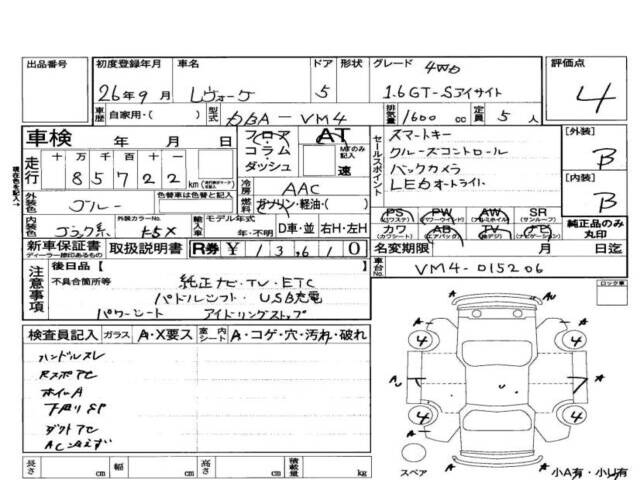 出品番号
初度登録年月
26年9月
車名
レヴォーグ
ドア
5
形状
グレード
4WD
1.6GT-Sアイサイト
評価点
4
車歴 自家用・( )
型式
DBA-VM4
排気量 1600 cc
定員 5 人
車検 年 月 日
フロア
コラム
ダッシュ
AT
MTのみ記入
速
セールスポイント
スマートキー
クルーズコントロール
バックカメラ
LEDオートライト
[外装]
B
[内装]
B
走行
十 万 千 百 十 一
8 5 7 2 2 km
冷房 AAC
外装色 ブルー
色替車は色替と記入
燃料 ガソリン・軽油・( )
内装色 ブラック系
外装カラーNo.
K5X
輸入車
モデル年式
年・不明
D車・並
右H・左H
PS (パワステ)
PW (パワーウインド)
AW (アルミホイル)
SR (サンルーフ)
カワ (カワシート)
AB (エアバッグ)
TV (純正)
ナビ
純正品のみ丸印
新車保証書
ディーラー捺印あるもの
取扱説明書
R券 ¥ 1 3 1 0
名変期限 月 日迄
注意事項
後日品 [ ]
不具合箇所等
純正ナビ・TV・ETC
パドルシフト・USB充電
パワーシート アイドリングストップ
車台No.
VM4-015206
検査員記入
ガラス A・X要ス
室内シート A・コゲ・穴・汚れ・破れ
ハンドルスレ
ホイールA
長さ cm
幅 cm
高さ cm
積載量 kg
スペア
小A有・小U有